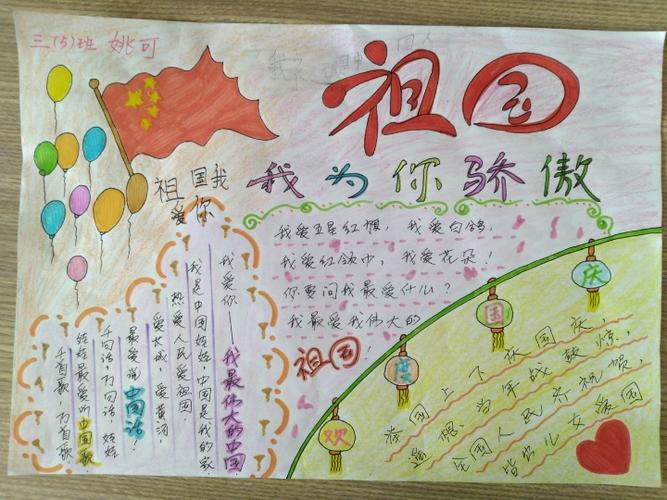 三(5)班 姚可
祖国
我为你骄傲
祖国我
爱你
我爱五星红旗,我爱白鸽,
我爱红领巾,我爱花朵!
你要问我最爱什么?
我最爱我伟大的
祖国!
我爱你——我最伟大的中国
我是中国娃娃,中国是我的家
热爱人民爱祖国.
爱长城,爱黄河,
最爱说中国话!
千句话,万句话,娃娃
娃娃最爱听中国歌
千首歌,万首歌
欢度国庆
国上下庆国庆,
想当年战鼓惊,
全国人民齐祝贺,
皆出儿女爱国